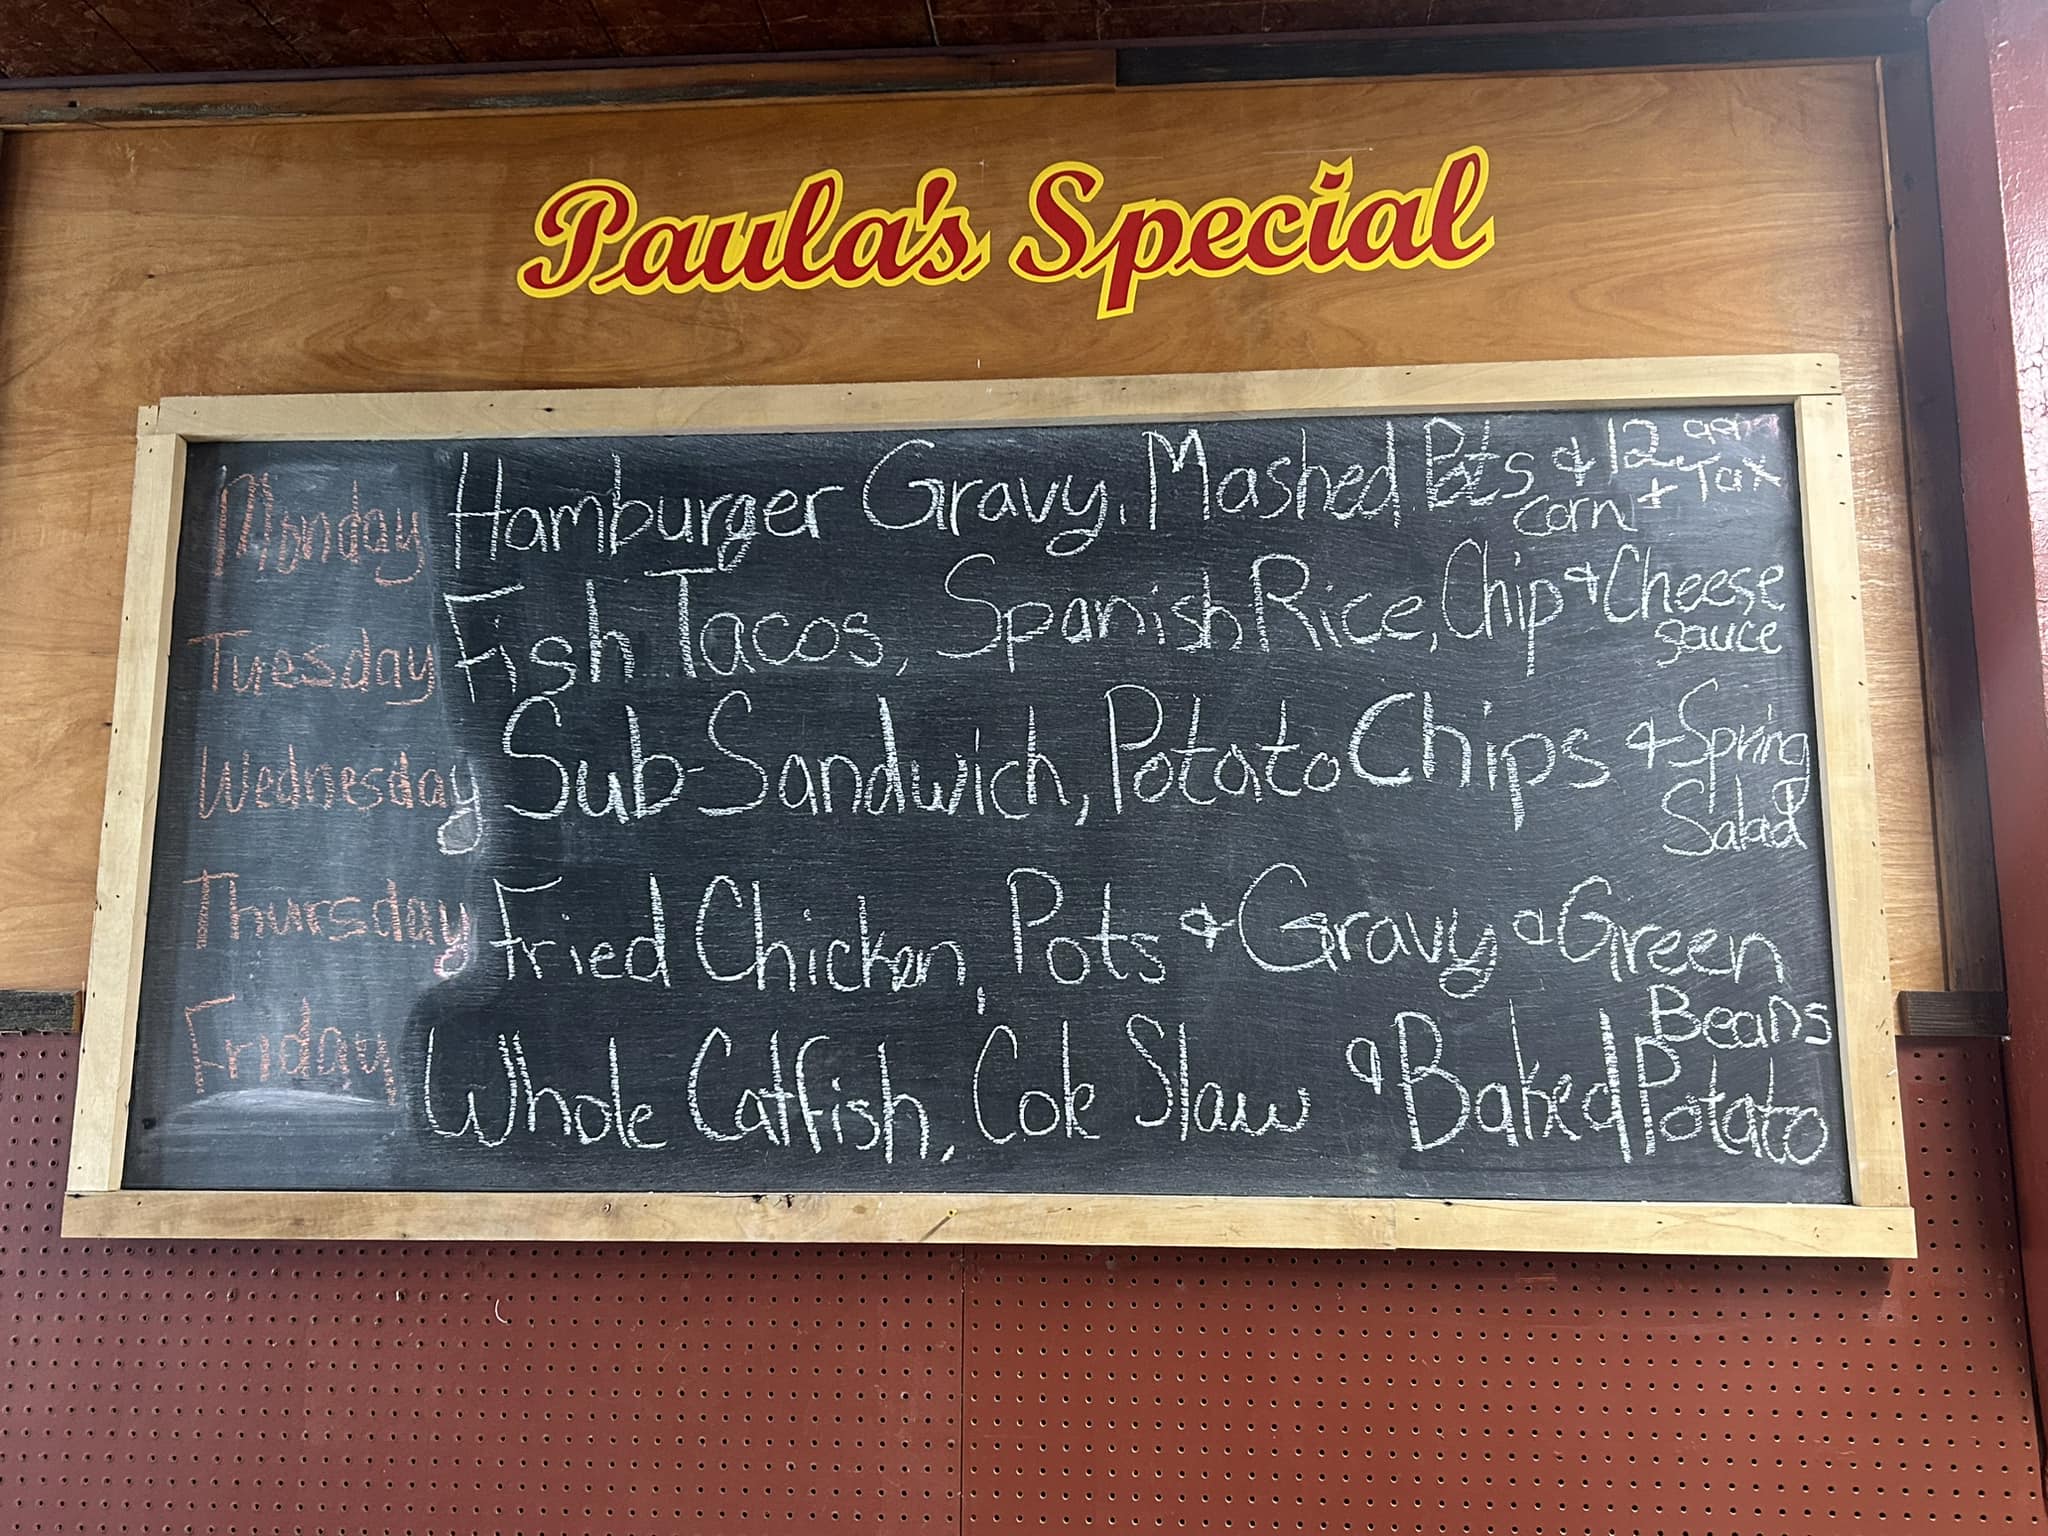 Paula's Special
Monday Hamburger Gravy, Mashed Pots & corn 12
+ Tax
Tuesday Fish Tacos, Spanish Rice, Chip & Cheese
sauce
Wednesday Sub-Sandwich, Potato Chips & Spring
Salad
Thursday Fried Chicken, Pots & Gravy & Green
Beans
Friday Whole Catfish, Cole Slaw & Baked Potato